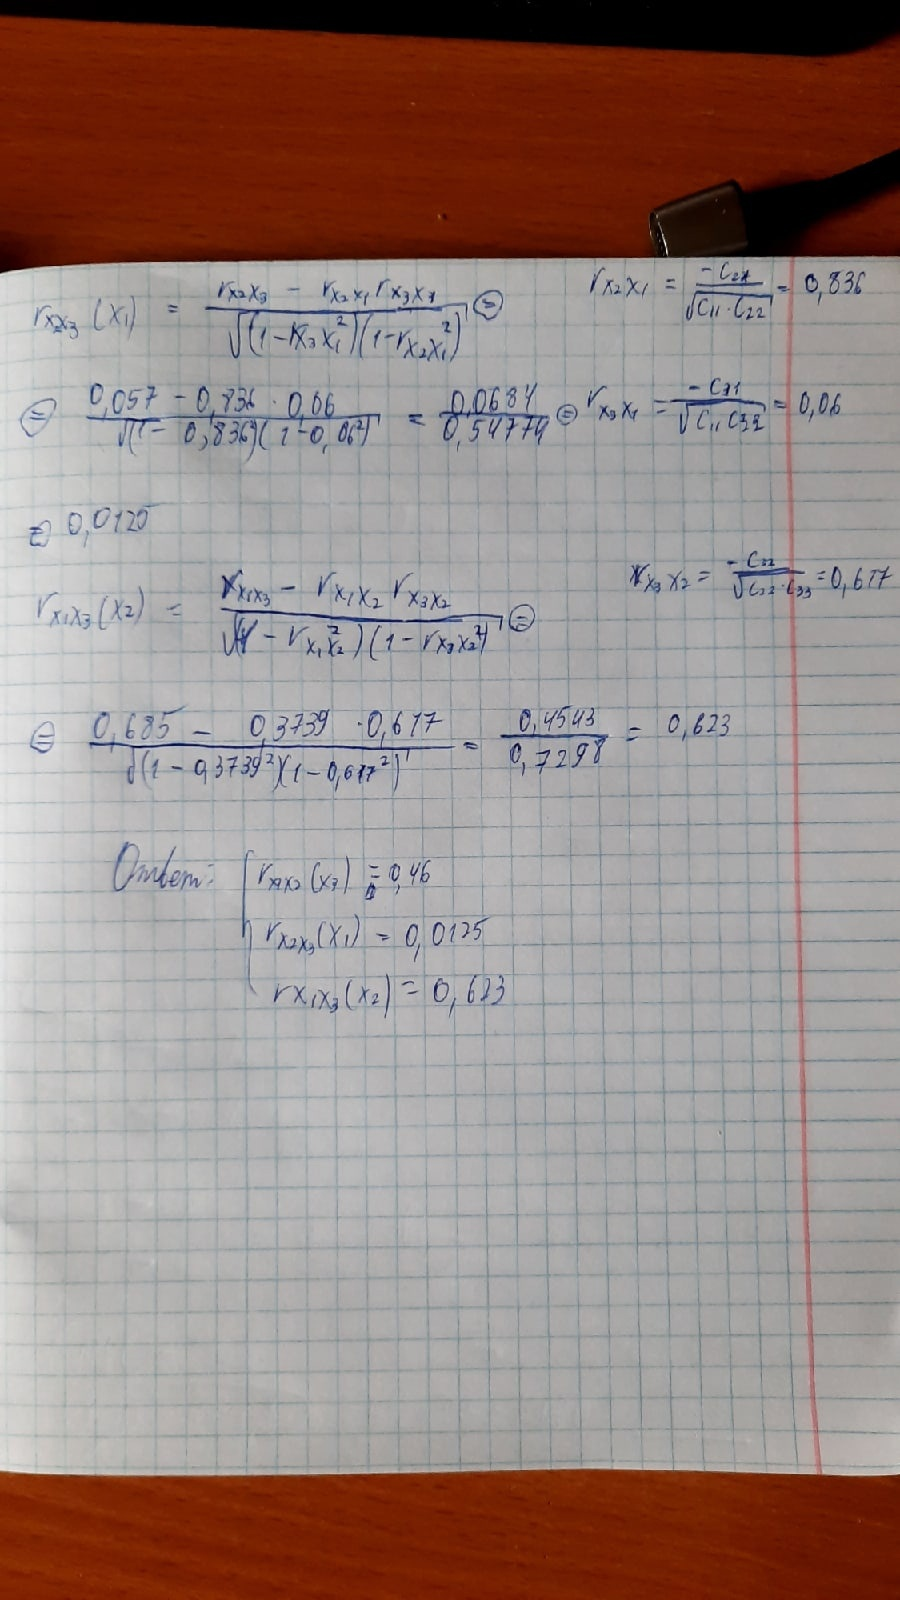 r_{x_2x_3}(x_1) = \frac{r_{x_2x_3} - r_{x_2x_1} r_{x_3x_1}}{\sqrt{(1-r_{x_3x_1}^2)(1-r_{x_2x_1}^2)}} =
r_{x_2x_1} = \frac{-C_{21}}{\sqrt{C_{11} \cdot C_{22}}} = 0,836
= \frac{0,057 - 0,836 \cdot 0,06}{\sqrt{(1-0,836^2)(1-0,06^2)}} = \frac{0,0684}{0,54774} =
r_{x_3x_1} = \frac{-C_{31}}{\sqrt{C_{11} C_{33}}} = 0,06
= 0,0125
r_{x_3x_2} = \frac{-C_{32}}{\sqrt{C_{22} \cdot C_{33}}} = 0,617
r_{x_1x_3}(x_2) = \frac{r_{x_1x_3} - r_{x_1x_2} r_{x_3x_2}}{\sqrt{(1-r_{x_1x_2}^2)(1-r_{x_3x_2}^2)}} =
= \frac{0,685 - 0,3739 \cdot 0,617}{\sqrt{(1-0,3739^2)(1-0,617^2)}} = \frac{0,4543}{0,7298} = 0,623
Ответ: = 0,46
r_{x_2x_3}(x_1) = 0,0125
r_{x_1x_3}(x_2) = 0,623